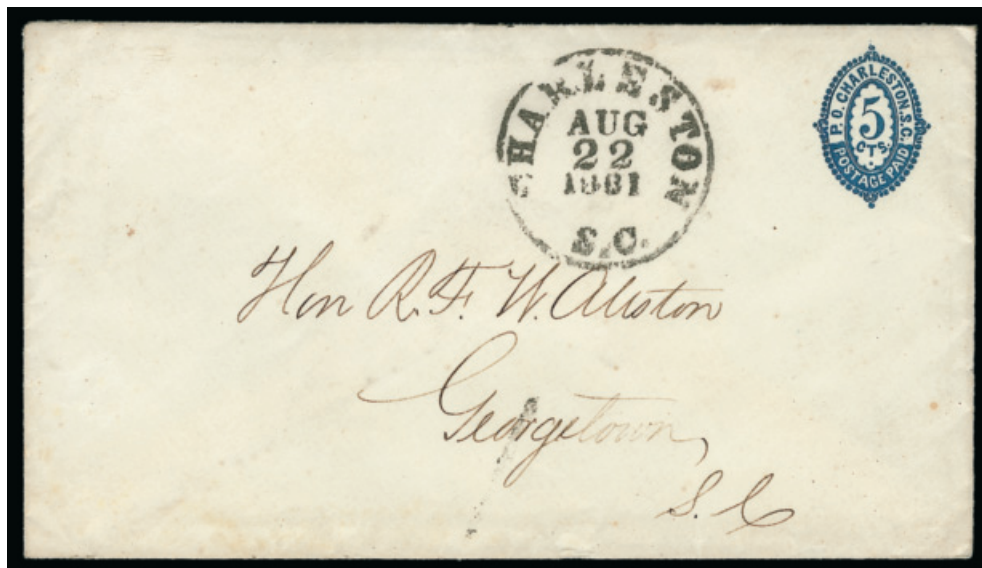 CHARLESTON
AUG
22
1861
S.C.
P.O. CHARLESTON, S.C.
5
CTS.
POSTAGE PAID
Hon R. F. W. Allston
Georgetown,
S. C